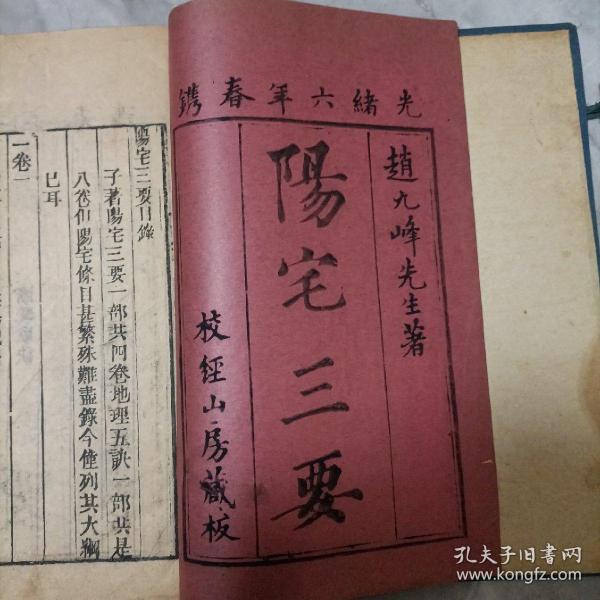 光緒六年春鐫
趙九峰先生著
陽宅三要
校經山房藏板
陽宅三要目錄
子著陽宅三要一部共四卷地理五訣一部共是
八卷但陽宅條目甚繁殊難盡錄今僅列其大綱
已耳
一卷一
孔夫子旧书网
www.kongfz.com